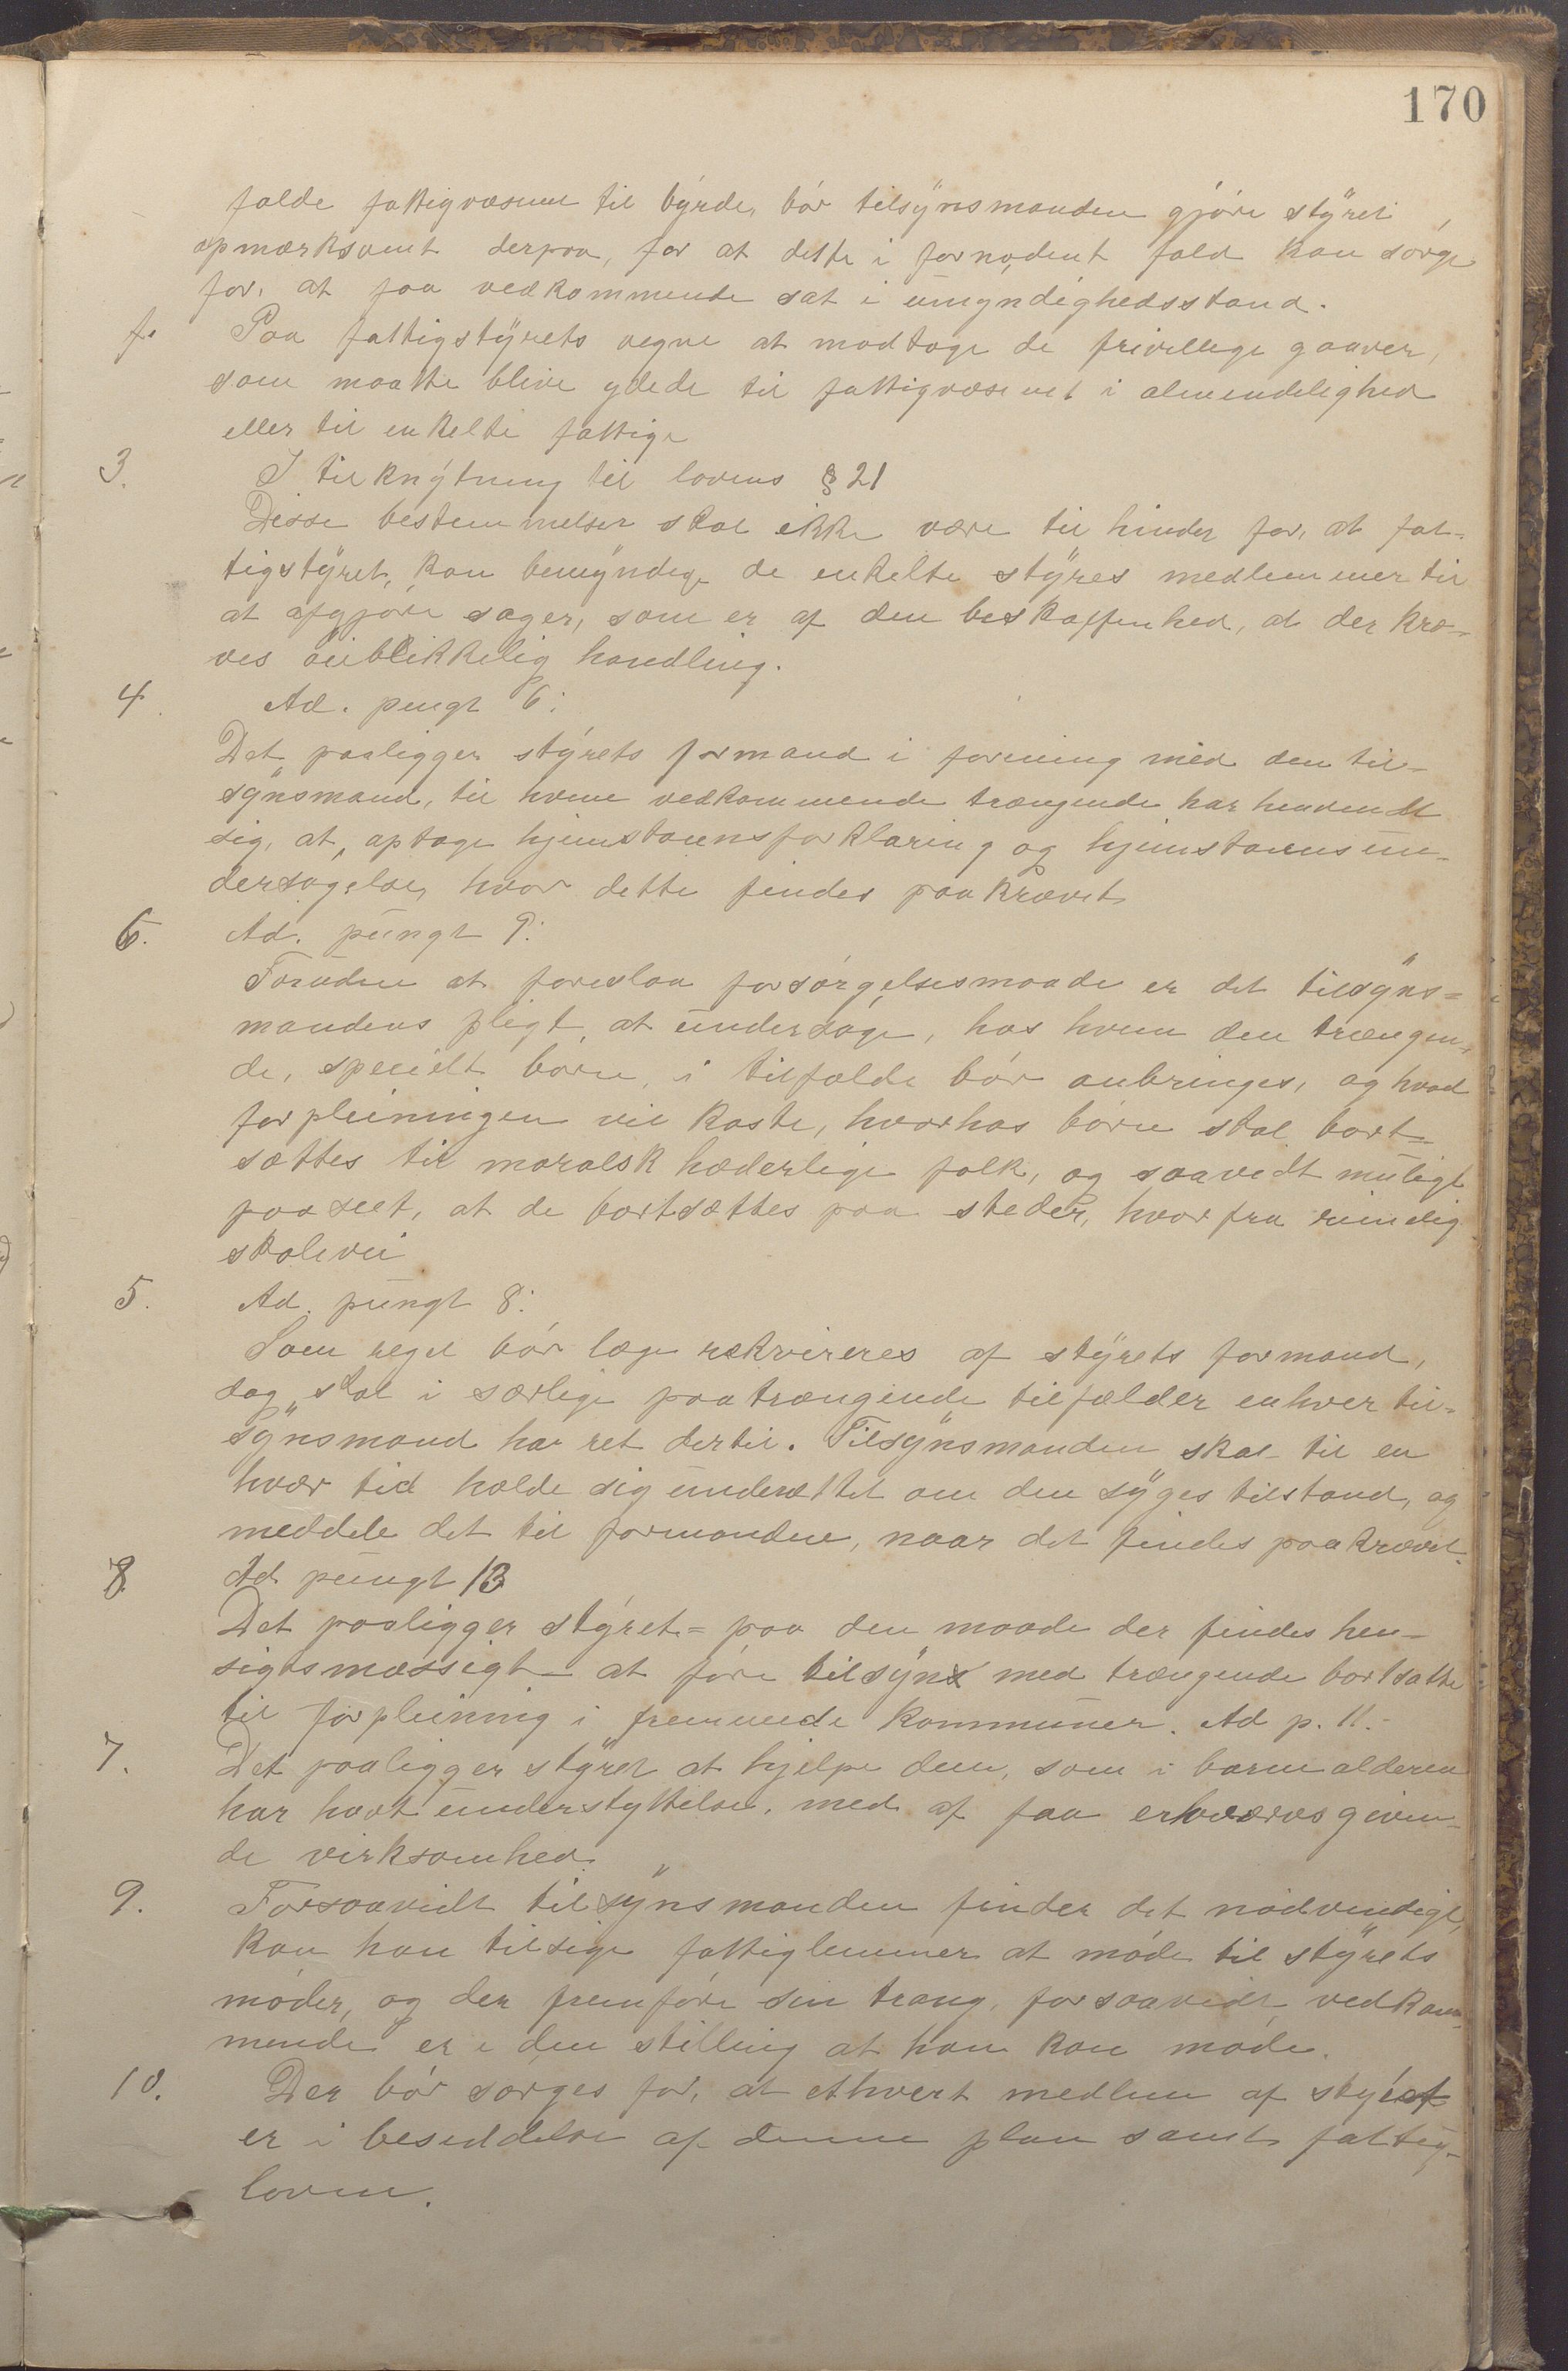 170
falde fattigvæsenet til byrde, bør tilsynsmanden gjøre styret
opmærksomt derpaa, for at dette i fornødent fald kan sørge
for, at faa vedkommende sat i umyndighedsstand.
f. Paa fattigstyrets vegne at modtage de frivillige gaaver,
som maatte blive ydede til fattigvæsenet i almendelighed
eller til enkelte fattige
3. I tilknytning til lovens § 21
Disse bestemmelser skal ikke være til hinder for, at fat-
tigstyret, kan bemyndige de enkelte styres medlemmer til
at afgjøre sager, som er af den beskaffenhed, at der kræ-
ves øiblikkelig handling.
4. Ad. pungt 6:
Det paaligger styrets formand i forening med den til-
synsmand, til hvem vedkommende trængende har henvendt
sig, at, optage hjemstavnsforklaring og hjemstavnsun-
dersøgelse, hvor dette findes paakrævet
6. Ad. pungt 9:
Foruden at foreslaa forsørgelsesmaade er det tilsyns-
mandens pligt, at undersøge, hos hvem den trængen-
de, specielt børn, i tilfælde bør anbringes, og hvad
forpleiningen vil koste, hvorhos børn skal bort-
sættes til moralsk hæderlige folk, og saavidt muligt
paaseet, at de bortsættes paa steder, hvorfra rimelig
skolevei
5. Ad. pungt 8:
Som regel bør læge rekvireres af styrets formand,
dog skal i særlige paatrængende tilfælder enhver til-
synsmand har ret dertil. Tilsynsmanden skal til en
hver tid holde sig underættet om den syges tilstand, og
meddele det til formanden, naar det findes paakrævet.
8 Ad pungt 13
Det paaligger styret= paa den maade der findes hen-
sigtsmæssigt at føre tilsyn med trængende bortsatte
til forpleining i fremmede kommuner. Ad p. 11.-
7. Det paaligger styret at hjelpe dem, som i barnealderen
har havt understyttelse, med af faa erhvervsgiven-
de virksomhed.
9. Forsaavidt tilsynsmanden finder det nødvendigt,
kan han tilsige fattiglemmer at møde til styrets
møder, og der fremføre sin trang, forsaavidt vedkom-
mende er i den stilling at han kan møde.
10. Der bør sørges for, at ethvert medlem af styret
er i besiddelse af denne plan samt fattig-
loven.